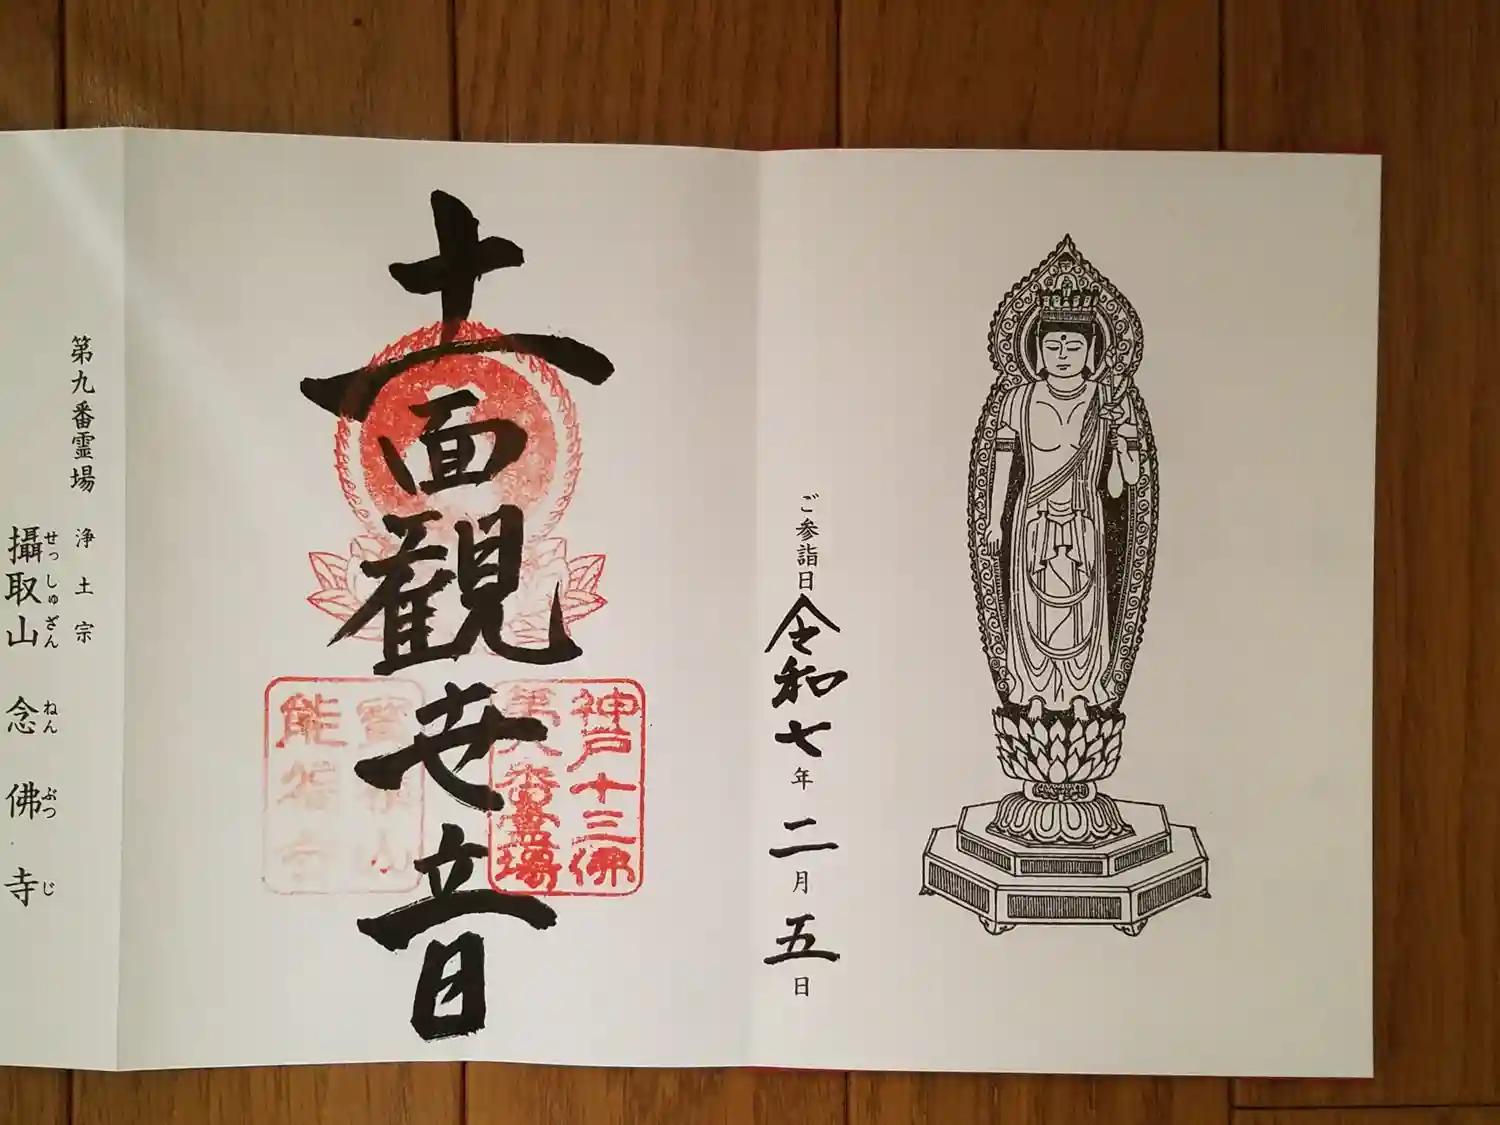 ご参詣日 令和七年二月五日
十一面観世音
神戸十三佛
第八番霊場
能福寺
第九番霊場 浄土宗
攝取山 念佛寺
せっしゅざん ねんぶつじ